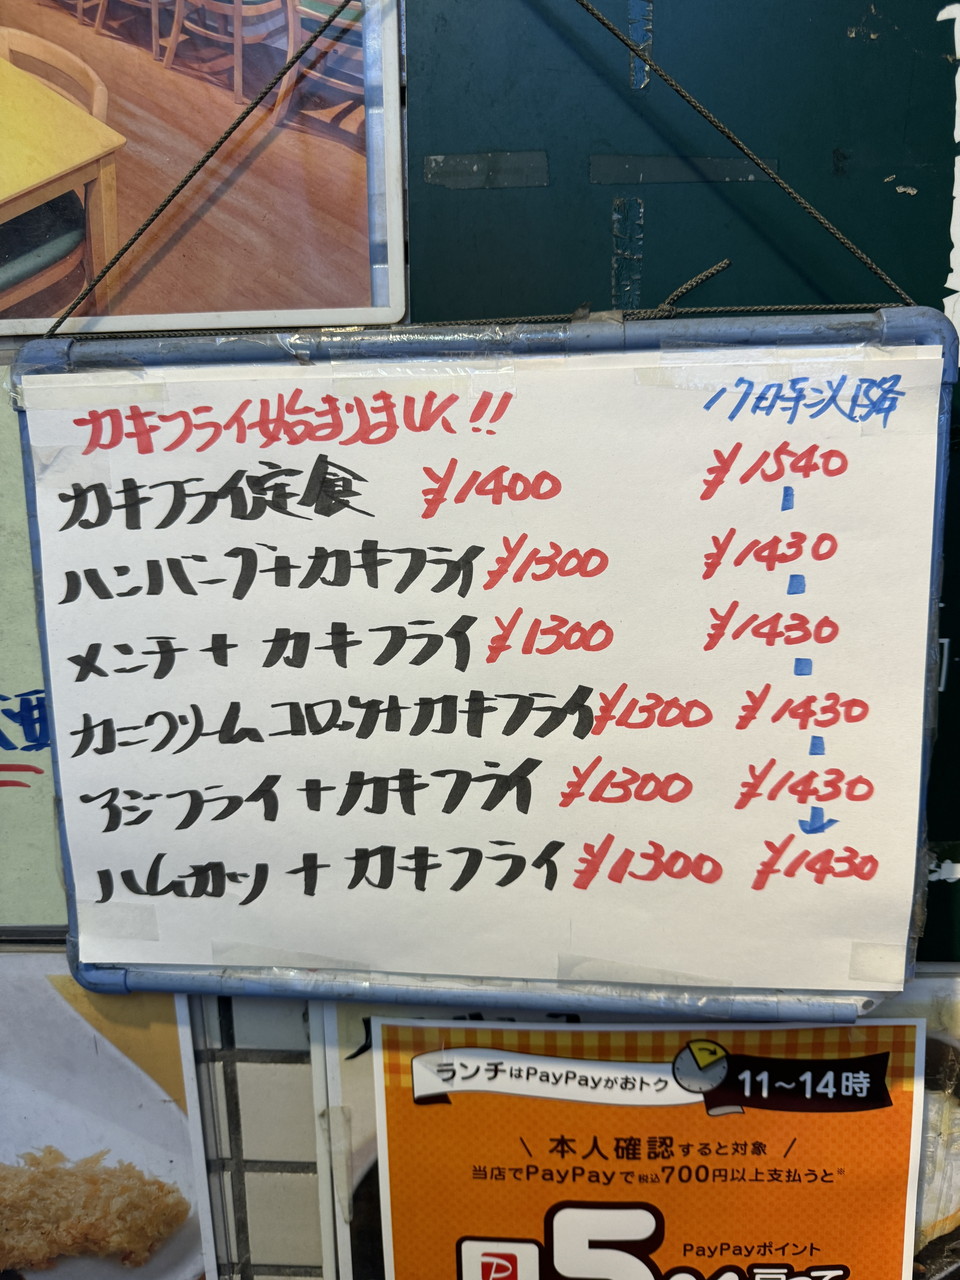 カキフライ始まりました!!
17時以降
カキフライ定食 ¥1400 ¥1540
ハンバーグ+カキフライ ¥1300 ¥1430
メンチ+カキフライ ¥1300 ¥1430
カニクリームコロッケ+カキフライ ¥1300 ¥1430
アジフライ+カキフライ ¥1300 ¥1430
ハムカツ+カキフライ ¥1300 ¥1430
ランチはPayPayがおトク
11~14時
\ 本人確認すると対象 /
当店でPayPayで税込700円以上支払うと※
5
PayPayポイント